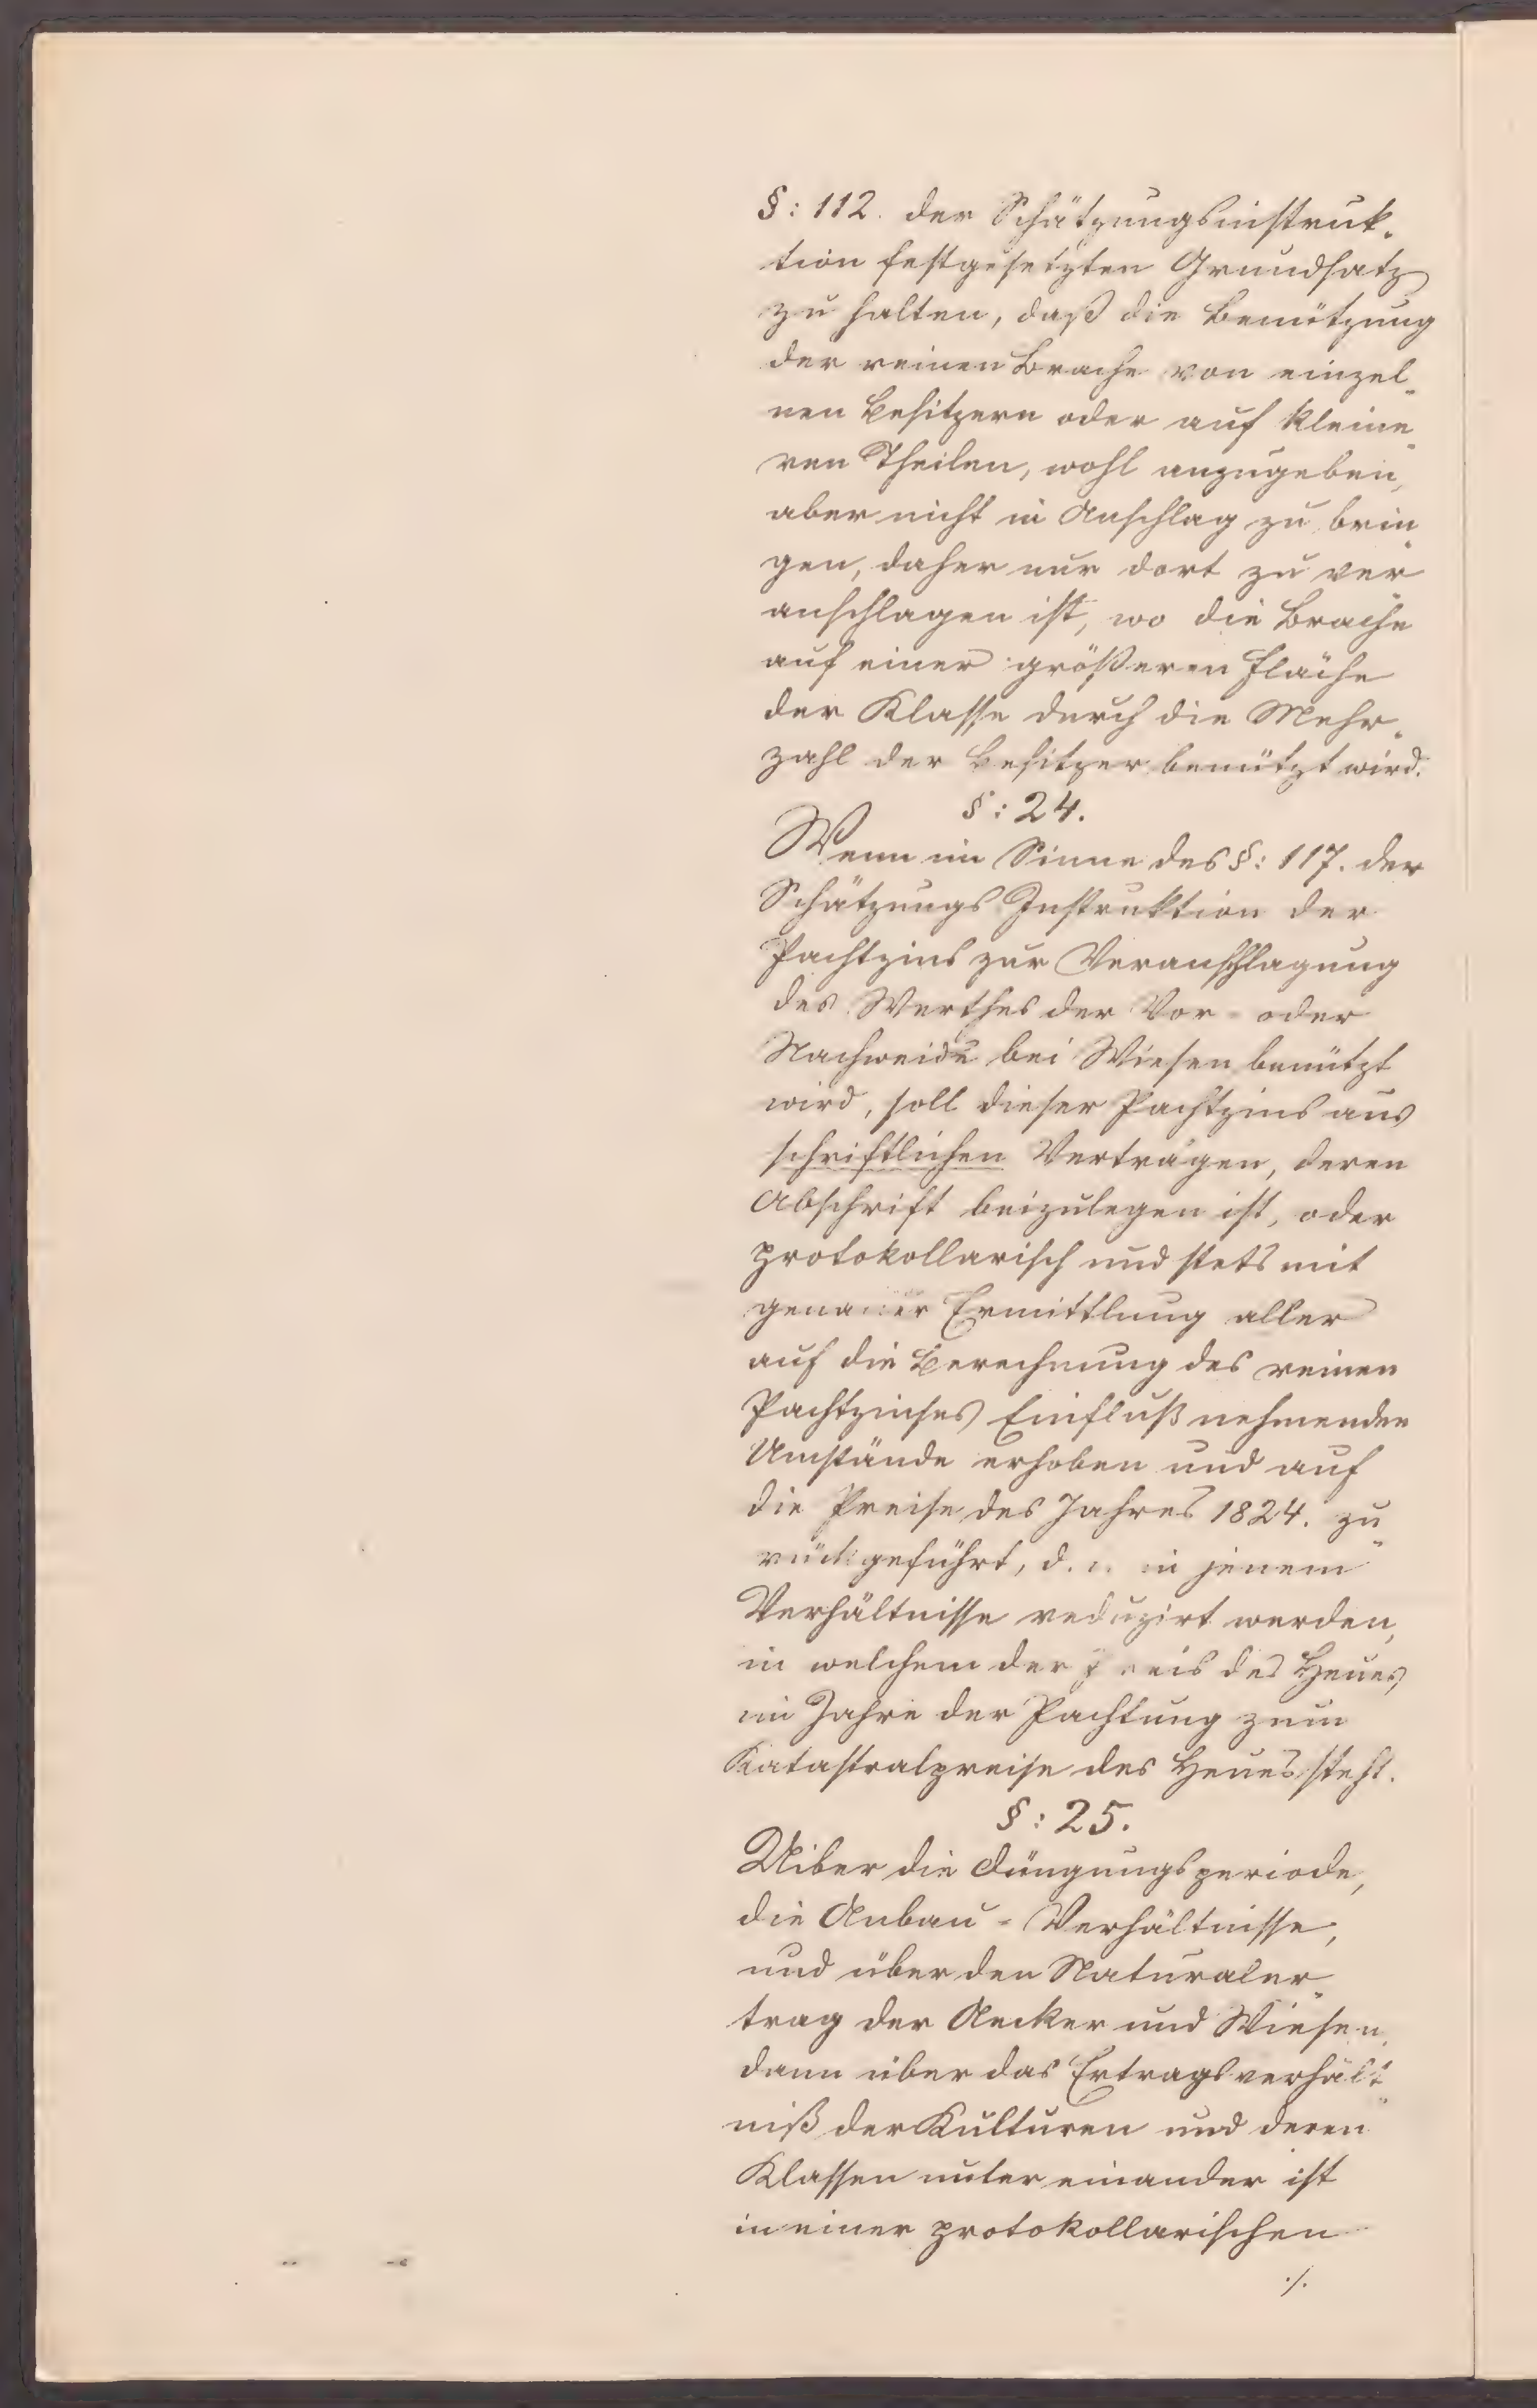 §: 112. der Schätzungsinstruk-
tion festgesetzten Grundsatz
zu halten, daß die Benützung
der reinen Brache von einzel-
nen Besitzern oder auf kleine-
ren Theilen, wohl anzugeben,
aber nicht in Anschlag zu brin-
gen, daher nur dort zu ver-
anschlagen ist, wo die Brache
auf einer größeren Fläche
der Klasse durch die Mehr-
zahl der Besitzer benützt wird.
§: 24.
Wenn im Sinne des §: 117. der
Schätzungs Instruktion der
Pachtzins zur Veranschlagung
des Werthes der Vor- oder
Nachweide bei Wiesen benützt
wird, soll dieser Pachtzins aus
schriftlichen Verträgen, deren
Abschrift beizulegen ist, oder
protokollarisch und stets mit
genauer Ermittlung aller
auf die Berechnung des reinen
Pachtzinses Einfluß nehmenden
Umstände erhoben und auf
die Preise des Jahres 1824. zu-
rückgeführt, d. i. in jenem
Verhältnisse reduzirt werden,
in welchem der Preis des Heues
im Jahre der Pachtung zum
Katastralpreise des Heues steht.
§: 25.
Uiber die Düngungsperiode,
die Anbau-Verhältnisse,
und über den Naturaler-
trag der Aecker und Wiesen,
dann über das Ertragsverhält-
niß der Kulturen und deren
Klassen unter einander ist
in einer protokollarischen
./.